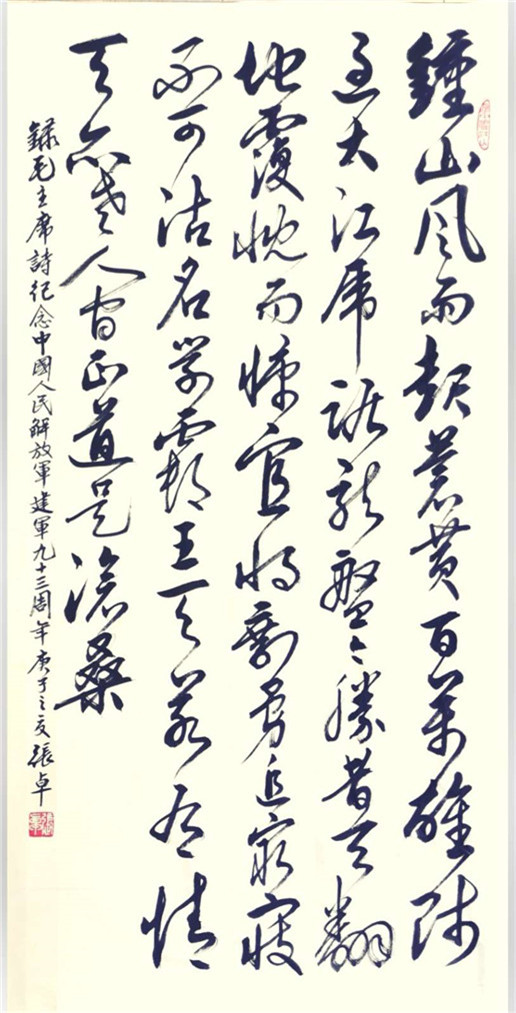 鍾山风雨起蒼黄百萬雄師
過大江虎踞龍盤今勝昔天翻
地覆慨而慷宜將剩勇追窮寇
不可沽名學霸王天若有情
天亦老人間正道是滄桑
録毛主席詩紀念中國人民解放軍建軍九十三周年庚子之夏張卓